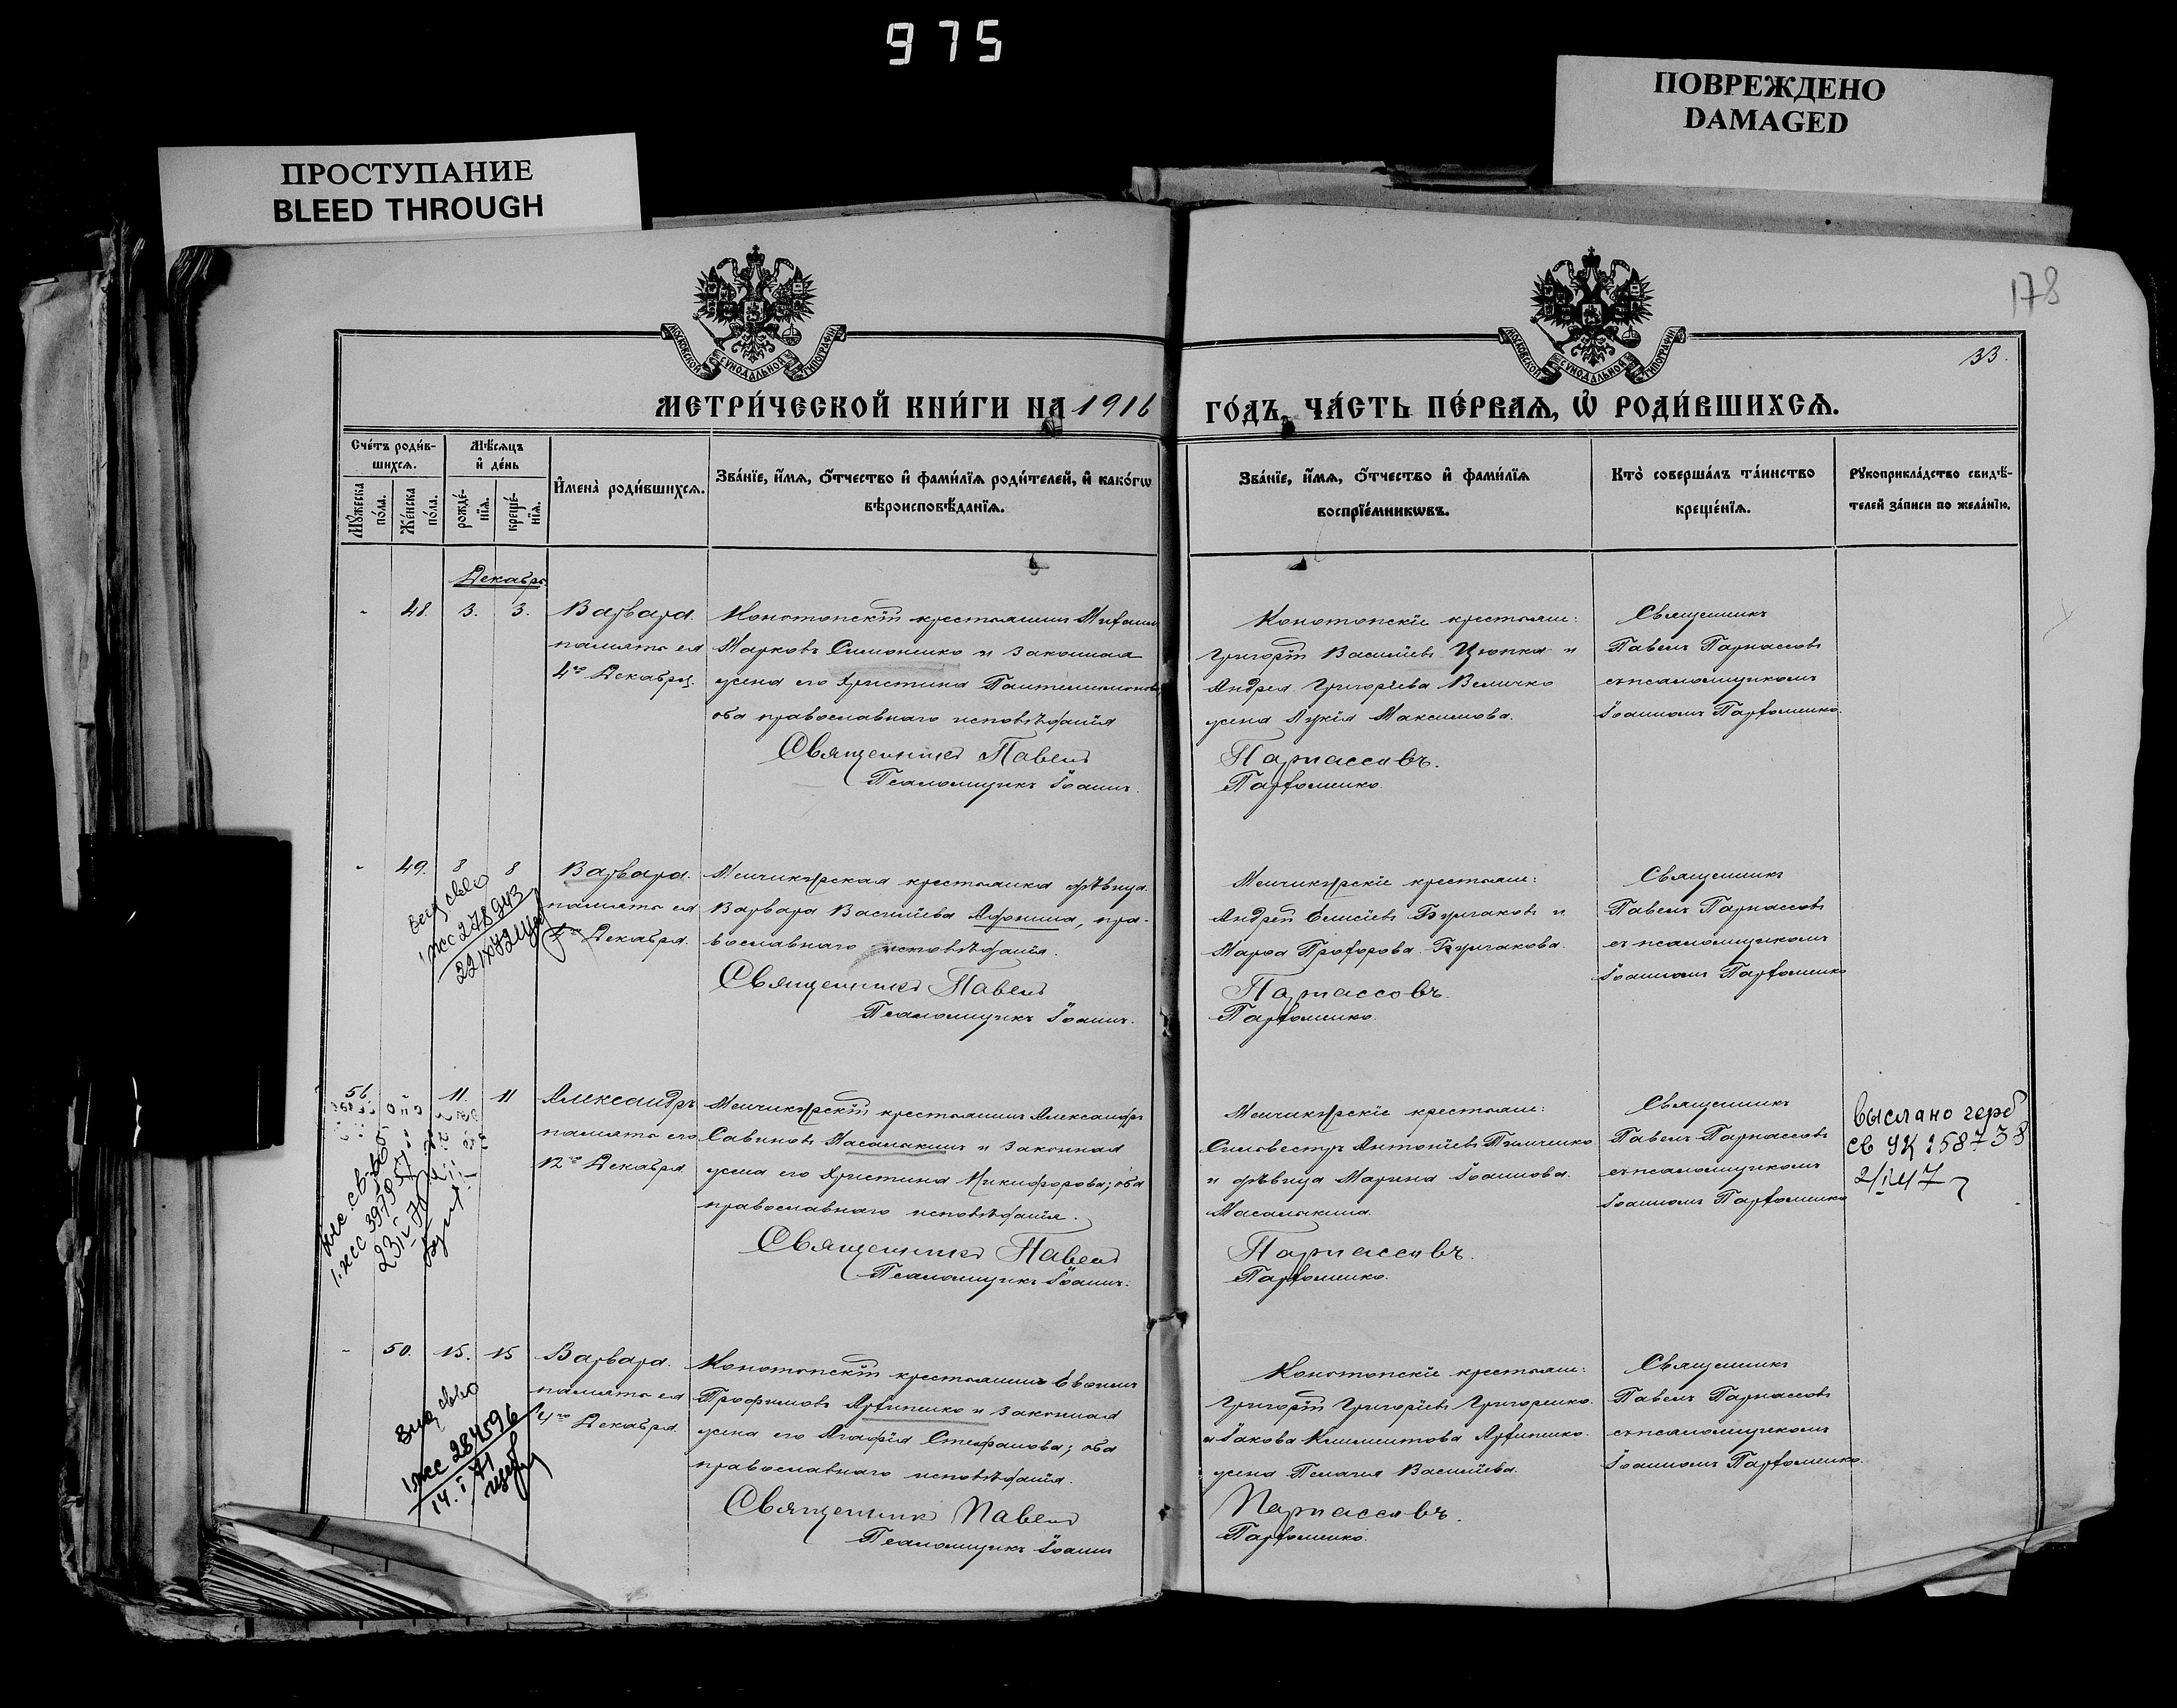 975
ПОВРЕЖДЕНО
DAMAGED
ПРОСТУПАНИЕ
BLEED THROUGH
178
МОСКОВСКОЙ СѴНОДАЛЬНОЙ ТИПОГРАФІИ
МОСКОВСКОЙ СѴНОДАЛЬНОЙ ТИПОГРАФІИ
33.
МЕТРИ́ЧЕСКОЙ КНИ́ГИ НА 1916
ГО́ДЪ, ЧА́СТЬ ПЕ́РВАѦ, Ѡ҆ РОДИ́ВШИХСѦ.
Сче́тъ роди́в-
шихсѧ.
Мѣ́сѧцъ
и҆ де́нь
Мꙋ́жеска
по́ла.
Же́нска
по́ла.
рожде́-
нїѧ.
креще́-
нїѧ.
И҆мена̀ роди́вшихсѧ.
Зва́нїе, и҆́мѧ, ѻ҆́тчество и҆ фами́лїѧ роди́телей, и҆ како́гѡ
вѣроисповѣ́данїѧ.
Зва́нїе, и҆́мѧ, ѻ҆́тчество и҆ фами́лїѧ
воспрїе́мникѡвъ.
Кто̀ соверша́лъ та́инство
креще́нїѧ.
Рꙋкоприкла́дство свидѣ́-
телей за́писи по жела́нїю.
Декабрь
- 48. 3. 3. Варвара.
память ея
4го Декабря.
Конотопскій крестьянинъ
Марковъ Симоненко и законная
жена его Христина Пантелимонова
оба православнаго исповѣданія
Священникъ Павелъ
Псаломщикъ Іоаннъ.
Конотопскіе крестьяне:
Григорій Васильевъ Цюпка и
Андрея Григорьева Величко
жена Лукія Максимова.
Парнассовъ.
Парфоменко.
Священникъ
Павелъ Парнассовъ
съ псаломщикомъ
Іоанномъ Парфоменко.
- 49. 8 8 Варвара.
память ея
Декабря.
278943
Менчикурская крестьянка дѣвица
Варвара Васильева Афонина, пра-
вославнаго исповѣданія.
Священникъ Павелъ
Псаломщикъ Іоаннъ.
Менчикурскіе крестьяне:
Андрей Елисѣевъ Бургаковъ и
Марфа Прохорова Бургакова.
Парнассовъ.
Парфоменко.
Священникъ
Павелъ Парнассовъ
съ псаломщикомъ
Іоанномъ Парфоменко
56. „ 11. 11 Александръ
память его
12го Декабря.
Менчикурскій крестьянинъ Александръ
Савиновъ Масалыкинъ и законная
жена его Христина Никифорова; оба
православнаго исповѣданія.
Священникъ Павелъ
Псаломщикъ Іоаннъ.
Менчикурскіе крестьяне:
Сильвестръ Антоніевъ
и дѣвица Марина Іоаннова
Масалыкина.
Парнассовъ.
Парфоменко.
Священникъ
Павелъ Парнассовъ
съ псаломщикомъ
Іоанномъ Парфоменко
выслано герб
св УК 158738
2/I 47
- 50. 15. 15 Варвара.
память ея
4го Декабря.
284596
14. I 71
Конотопскій крестьянинъ Евфимъ
Трофимовъ Архипенко и законная
жена его Агафія Стефанова; оба
православнаго исповѣданія.
Священникъ Павелъ
Псаломщикъ Іоаннъ
Конотопскіе крестьяне:
Григорій Григорьевъ Григоренко
и Іакова Климентова Архипенко
жена Пелагия Васильева.
Парнассовъ.
Парфоменко.
Священникъ
Павелъ Парнассовъ
съ псаломщикомъ
Іоанномъ Парфоменко.